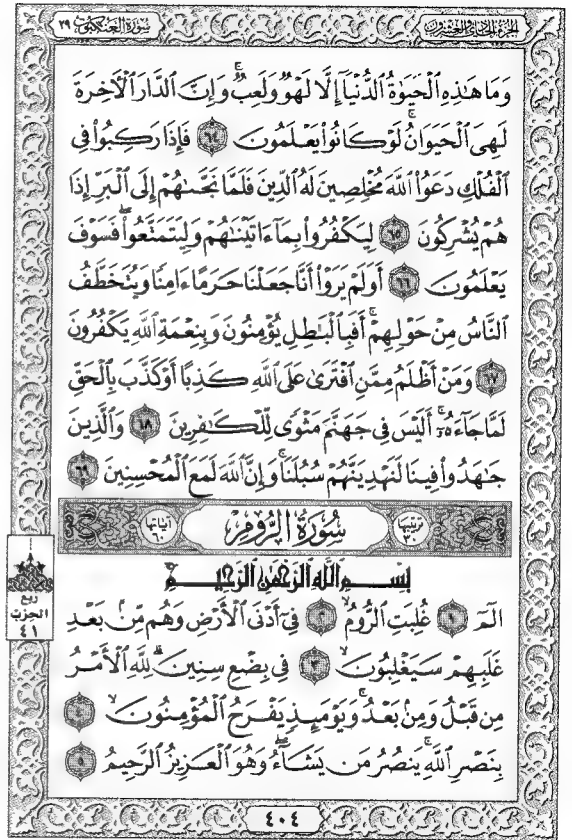 سُورَةُ العَنكَبُوتِ ٢٩
الجُزْءُ الحَادِى وَالعِشْرُونَ
وَمَا هَٰذِهِ ٱلْحَيَوٰةُ ٱلدُّنْيَآ إِلَّا لَهْوٌ وَلَعِبٌ ۚ وَإِنَّ ٱلدَّارَ ٱلْأَخِرَةَ
لَهِىَ ٱلْحَيَوَانُ ۚ لَوْ كَانُوا۟ يَعْلَمُونَ ٦٤ فَإِذَا رَكِبُوا۟ فِى
ٱلْفُلْكِ دَعَوُا۟ ٱللَّهَ مُخْلِصِينَ لَهُ ٱلدِّينَ فَلَمَّا نَجَّىٰهُمْ إِلَى ٱلْبَرِّ إِذَا
هُمْ يُشْرِكُونَ ٦٥ لِيَكْفُرُوا۟ بِمَآ ءَاتَيْنَٰهُمْ وَلِيَتَمَتَّعُوا۟ ۖ فَسَوْفَ
يَعْلَمُونَ ٦٦ أَوَلَمْ يَرَوْا۟ أَنَّا جَعَلْنَا حَرَمًا ءَامِنًا وَيُتَخَطَّفُ
ٱلنَّاسُ مِنْ حَوْلِهِمْ ۚ أَفَبِٱلْبَٰطِلِ يُؤْمِنُونَ وَبِنِعْمَةِ ٱللَّهِ يَكْفُرُونَ
٦٧ وَمَنْ أَظْلَمُ مِمَّنِ ٱفْتَرَىٰ عَلَى ٱللَّهِ كَذِبًا أَوْ كَذَّبَ بِٱلْحَقِّ
لَمَّا جَآءَهُۥٓ ۚ أَلَيْسَ فِى جَهَنَّمَ مَثْوًى لِّلْكَٰفِرِينَ ٦٨ وَٱلَّذِينَ
جَٰهَدُوا۟ فِينَا لَنَهْدِيَنَّهُمْ سُبُلَنَا ۚ وَإِنَّ ٱللَّهَ لَمَعَ ٱلْمُحْسِنِينَ ٦٩
ترتيبها ٣٠
سُورَةُ الرُّومِ
آياتها ٦٠
بِسْمِ ٱللَّهِ ٱلرَّحْمَٰنِ ٱلرَّحِيمِ
الٓمٓ ١ غُلِبَتِ ٱلرُّومُ ٢ فِىٓ أَدْنَى ٱلْأَرْضِ وَهُم مِّنۢ بَعْدِ
غَلَبِهِمْ سَيَغْلِبُونَ ٣ فِى بِضْعِ سِنِينَ ۗ لِلَّهِ ٱلْأَمْرُ
مِن قَبْلُ وَمِنۢ بَعْدُ ۚ وَيَوْمَئِذٍ يَفْرَحُ ٱلْمُؤْمِنُونَ ٤
بِنَصْرِ ٱللَّهِ ۚ يَنصُرُ مَن يَشَآءُ ۖ وَهُوَ ٱلْعَزِيزُ ٱلرَّحِيمُ ٥
ربع
الحزب
٤١
٤٠٤